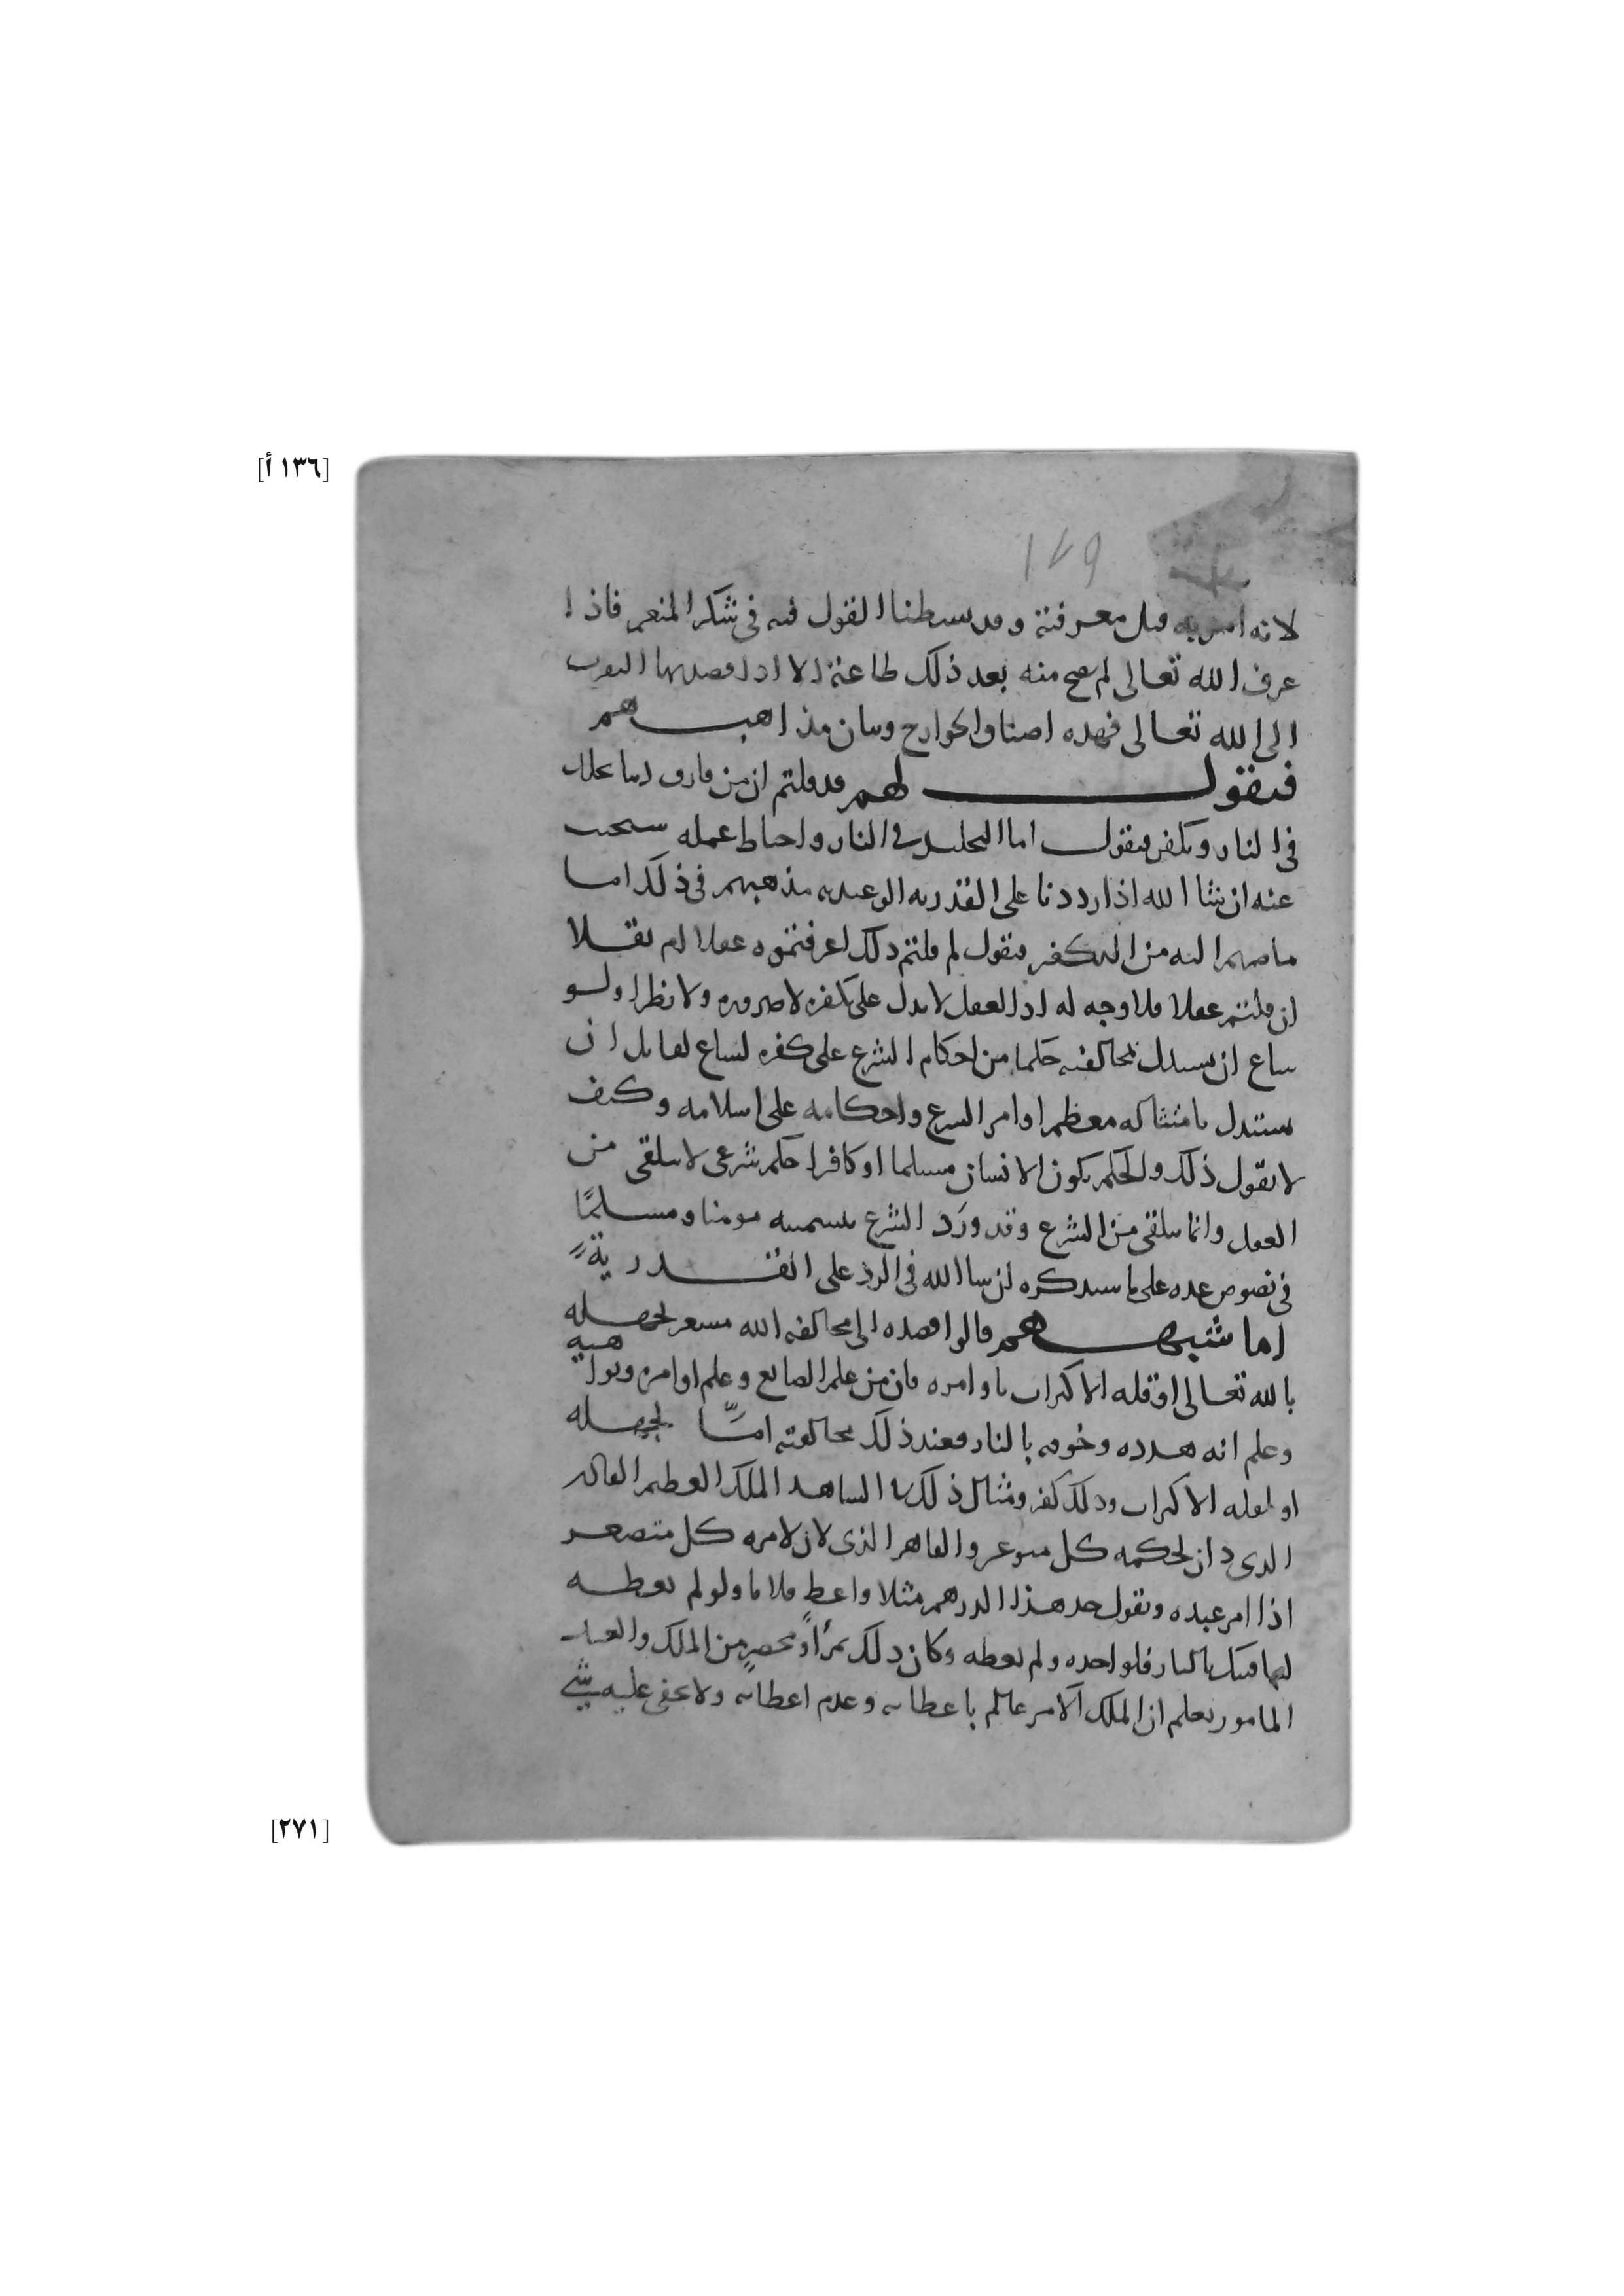 [١٣٦ أ]
١٤٩
لانه امر به قبل معرفته وقد بسطنا القول فيه في شكر المنعم فاذا
عرف الله تعالى لم يصح منه بعد ذلك طاعة الا اذا قصد بها التقرب
الى الله تعالى فهذه اصناف الخوارج وبيان مذاهبهم
فنقول لهم قد قلتم ان من قارف ذنبا يخلد
في النار ويكفر فنقول اما التخليد في النار واحباط عمله سنجيب
عنه ان شا الله اذا رددنا على القدرية الوعيدية مذهبهم في ذلك اما
ما صرتم اليه من التكفير فنقول لم قلتم ذلك اعرفتموه عقلا ام نقلا
ان قلتم عقلا فلا وجه له اذ العقل لا يدل على كفره لا ضرورة ولا نظرا ولو
ساغ ان يستدل بمخالفته حكما من احكام الشرع على كفره لساغ لقايل ان
يستدل بامتثاله معظم اوامر الشرع واحكامه على اسلامه وكيف
لا نقول ذلك والحكم بكون الانسان مسلما او كافرا حكم شرعي لا يتلقى من
العقل وانما يتلقى من الشرع وقد ورد الشرع بتسميته مومنا ومسلما
في نصوص عدة على ما سنذكره ان شا الله في الرد على القدرية
اما شبهتهم قالوا قصده الى مخالفة الله مشعر بجهله
بالله تعالى او قلة الاكتراث باوامره فان من علم الصانع وعلم اوامره ونواهيه
وعلم انه هدده وخوفه بالنار فعند ذلك مخالفته اما لجهله
او لقلة الاكتراث وذلك كفر ومثال ذلك في الشاهد الملك العظيم القادر
الذي دان لحكمه كل متوعر والقاهر الذي لان لامره كل متصعر
اذا امر عبده ويقول خذ هذا الدرهم مثلا واعط فلانا ولو لم تعطه
لعاقبتك بالنار فلو اخذه ولم يعطه وكان ذلك بمرأى ومحضر من الملك والعبد
المامور يعلم ان الملك الآمر عالم باعطائه وعدم اعطائه ولا يخفى عليه شي
[٢٧١]